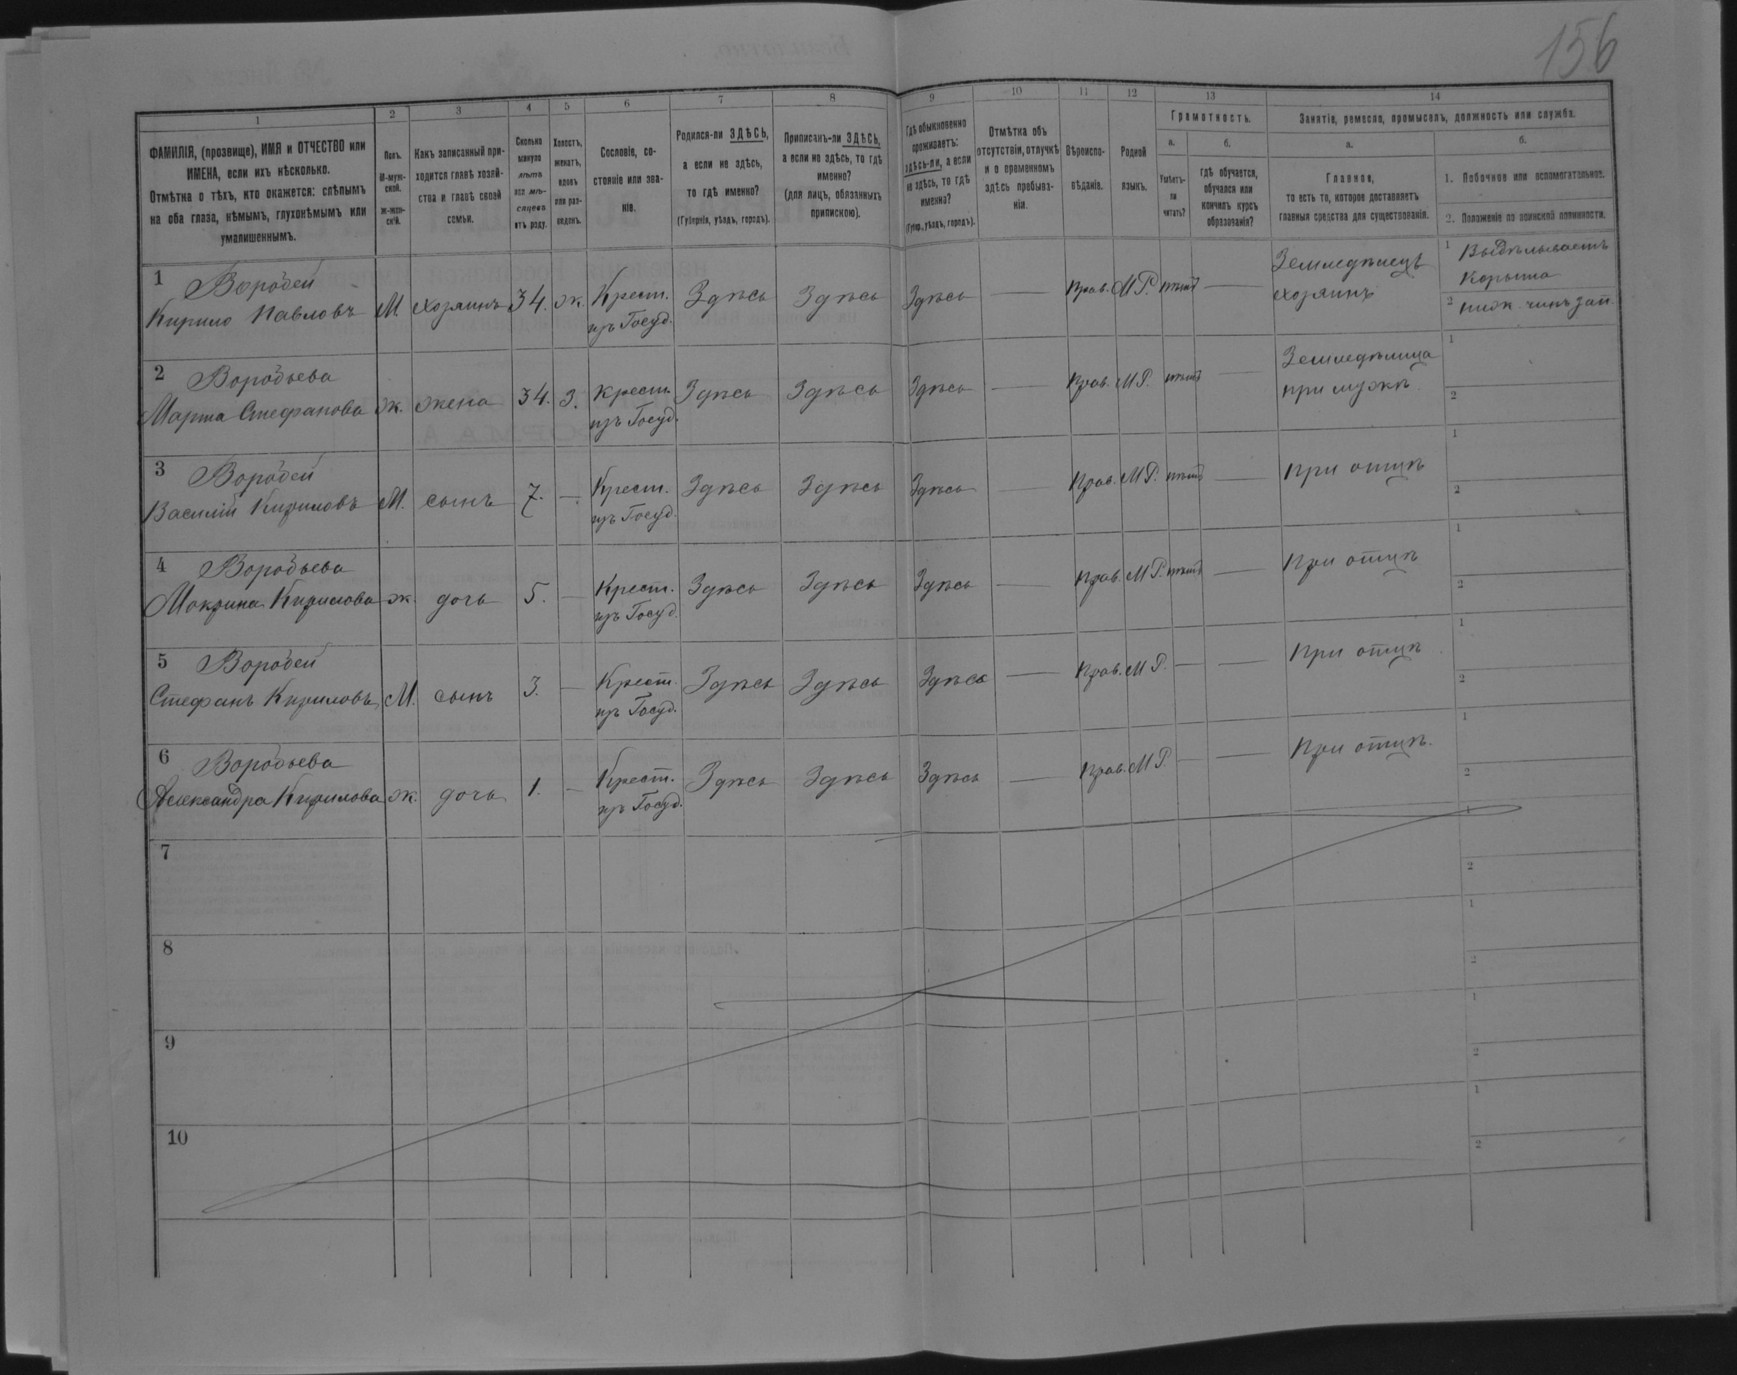 156
1 2 3 4 5 6 7 8 9 10 11 12 13 14
ФАМИЛІЯ, (прозвище), ИМЯ и ОТЧЕСТВО или
ИМЕНА, если ихъ нѣсколько.
Отмѣтка о тѣхъ, кто окажется: слѣпымъ
на оба глаза, нѣмымъ, глухонѣмымъ или
умалишеннымъ.
Полъ.
М-муж-
ской.
Ж-жен-
скій.
Какъ записанный при-
ходится главѣ хозяй-
ства и главѣ своей
семьи.
Сколько
минуло
лѣтъ
или мѣ-
сяцевъ
отъ роду.
Холостъ,
женатъ,
вдовъ
или раз-
веденъ.
Сословіе, со-
стояніе или зва-
ніе.
Родился-ли ЗДѢСЬ,
а если не здѣсь,
то гдѣ именно?
(Губернія, уѣздъ, городъ).
Приписанъ-ли ЗДѢСЬ,
а если не здѣсь, то гдѣ
именно?
(для лицъ, обязанныхъ
припискою).
Гдѣ обыкновенно
проживаетъ:
здѣсь-ли, а если
не здѣсь, то гдѣ
именно?
(Губер., уѣздъ, городъ).
Отмѣтка объ
отсутствіи, отлучкѣ
и о временномъ
здѣсь пребыва-
ніи.
Вѣроиспо-
вѣданіе.
Родной
языкъ.
Грамотность.
а.
Умѣетъ-
ли
читать?
б.
гдѣ обучается,
обучался или
кончилъ курсъ
образованія?
Занятіе, ремесло, промыселъ, должность или служба.
а.
Главное,
то есть то, которое доставляетъ
главныя средства для существованія.
б.
1. Побочное или вспомогательное.
2. Положеніе по воинской повинности.
1 Воробей
Кирило Павловъ М хозяинъ 34. ж. Крест. изъ Госуд. Здѣсь Здѣсь Здѣсь — Прав. М.Р. нѣтъ — Земледѣлецъ хозяинъ
1 Выдѣлываетъ
Корыта
2 ниж. чинъ зап.
2 Воробьева
Марта Стефанова ж. жена 34. З. Крест. изъ Госуд. Здѣсь Здѣсь Здѣсь — Прав. М.Р. нѣтъ — Земледѣлица при мужѣ
1
2
3 Воробей
Василій Кириловъ М. сынъ 7. — Крест. изъ Госуд. Здѣсь Здѣсь Здѣсь — Прав. М.Р. нѣтъ — При отцѣ
1
2
4 Воробьева
Мокрина Кирилова ж. дочь 5. — Крест. изъ Госуд. Здѣсь Здѣсь Здѣсь — Прав. М.Р. нѣтъ — При отцѣ
1
2
5 Воробей
Стефанъ Кириловъ М. сынъ 3. — Крест. изъ Госуд. Здѣсь Здѣсь Здѣсь — Прав. М.Р. — — При отцѣ
1
2
6 Воробьева
Александра Кирилова ж. дочь 1. — Крест. изъ Госуд. Здѣсь Здѣсь Здѣсь — Прав. М.Р. — — При отцѣ.
1
2
7
1
2
8
1
2
9
1
2
10
1
2